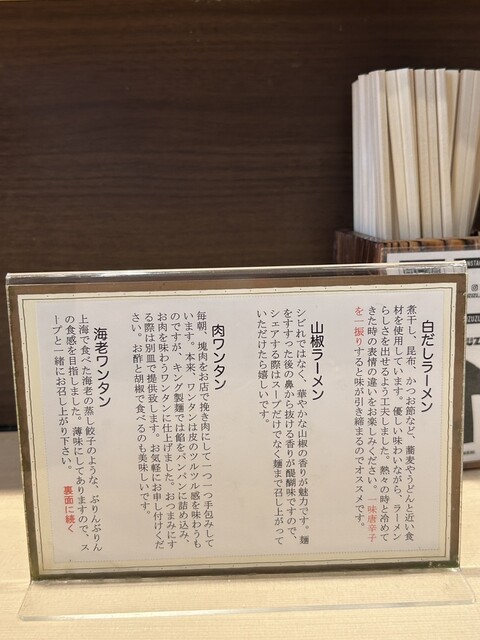 白だしラーメン
煮干し、昆布、かつお節など、蕎麦やうどんと近い食
材を使用しています。優しい味わいながら、ラーメン
らしさを出せるよう工夫しました。熱々の時と冷めて
きた時の表情の違いをお楽しみください。一味唐辛子
を一振りすると味が引き締まるのでオススメです。
山椒ラーメン
シビれではなく、華やかな山椒の香りが魅力です。麺
をすすった後の鼻から抜ける香りが醍醐味ですので、
シェアする際はスープだけでなく麺まで召し上がって
いただけたら嬉しいです。
肉ワンタン
毎朝、塊肉をお店で挽き肉にして一つ一つ手包みして
います。本来、ワンタンは皮のツルツル感を味わうも
のですが、キング製麺では餡をパンパンに詰め込み、
お肉を味わうワンタンに仕上げました。おつまみにす
る際は別皿で提供致します。お気軽にお申し付けくだ
さい。お酢と胡椒で食べるのも美味しいです。
海老ワンタン
上海で食べた海老の蒸し餃子のような、ぷりんぷりん
の食感を目指しました。薄味にしてありますので、ス
ープと一緒にお召し上がり下さい。
裏面に続く